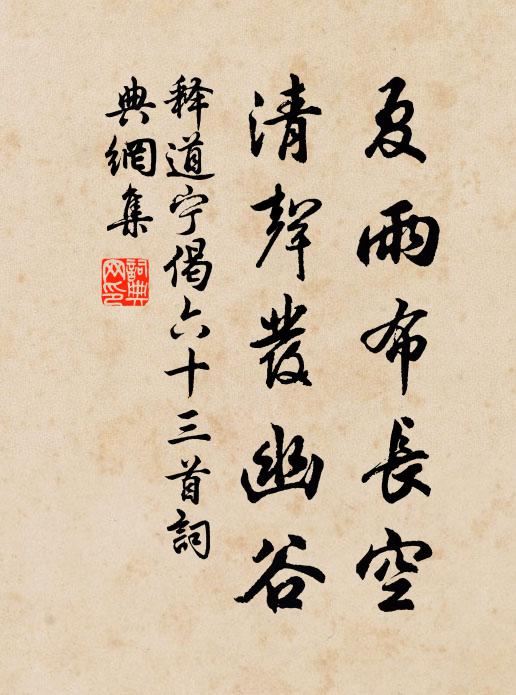 夏雨布長空
清聲發幽谷
释道宁偈六十三首詞
典網集
詞典
网印